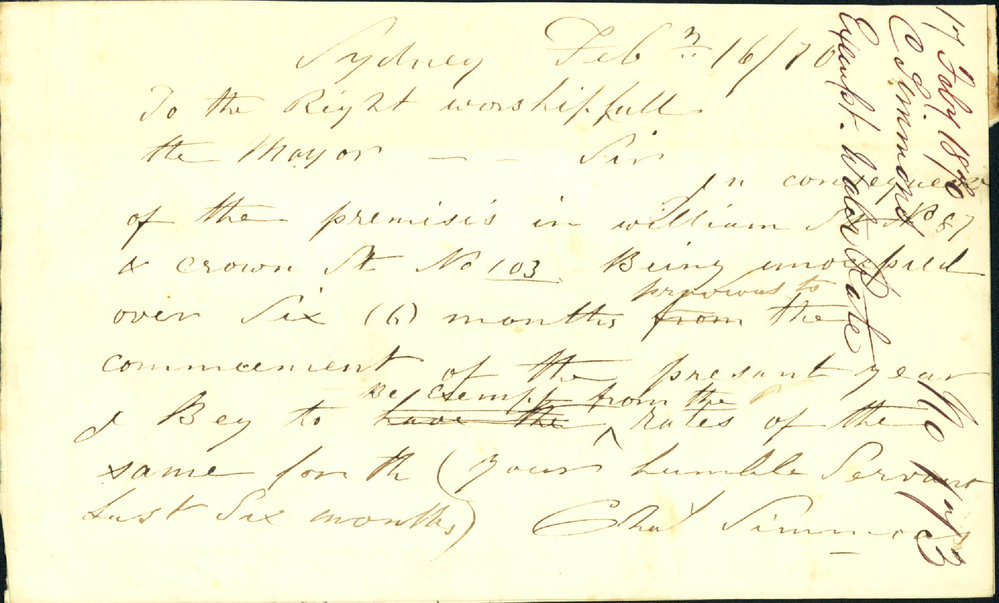 Sydney Feb 16/70
To the Right worshipfull
the Mayor — — Sir
In consequence
of the premisis in william St No 87
& crown St No 103 Being unocupied
previous to
over Six (6) months from the
commcement of the present year
Be exempt from the
I Beg to have the ^ rates of the
same for th (your humble Servant
Last Six months) Chas Simmons
17 Feby 1870
C Simmond
Exempt. Water Rate
No 173